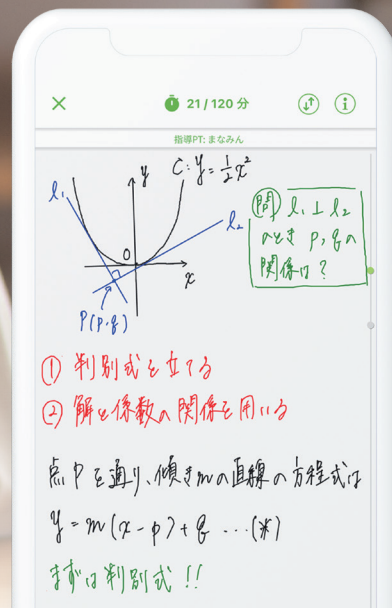 21 / 120 分
指導PT: まなみん
C: y = 1/2 x²
y
l₁
l₂
O
x
P(p, q)
問 l₁ ⊥ l₂
のとき p, qの
関係は?
① 判別式を立てる
② 解と係数の関係を用いる
点Pを通り、傾きmの直線の方程式は
y = m(x - p) + q …(*)
まずは判別式!!